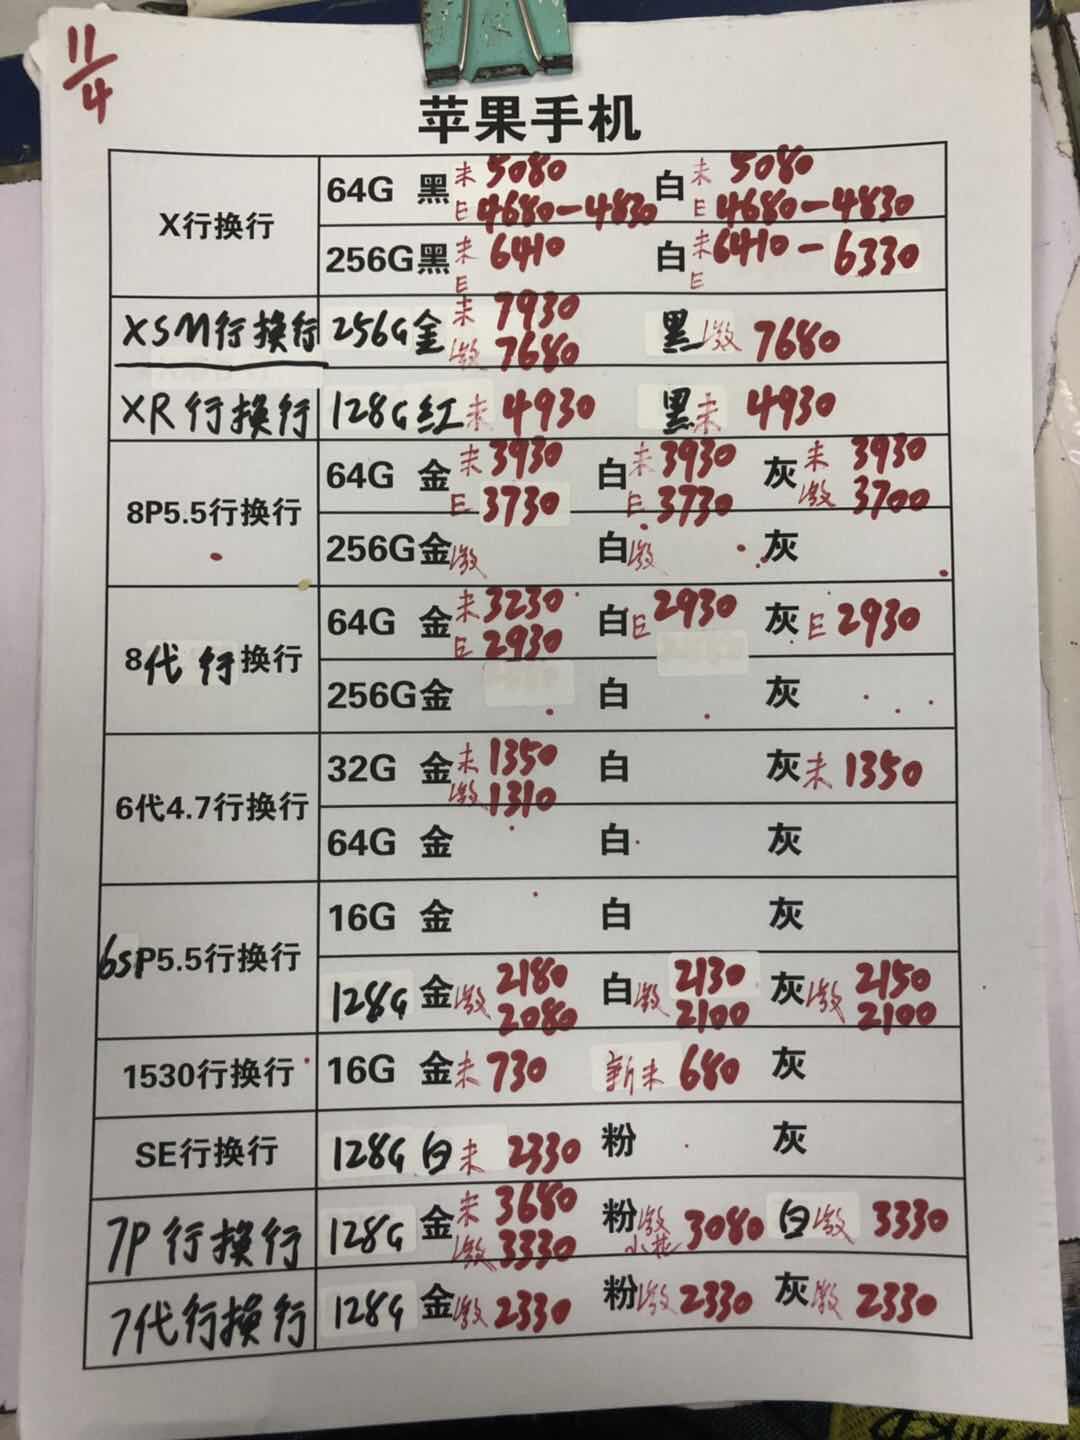 11/4
苹果手机
X行换行
64G 黑 未 5080 白 未 5080
E 4680-4830 E 4680-4830
256G 黑 未 6410 白 未 6410-6330
E E
XSM行换行 256G 金 未 7930 黑 激 7680
激 7680
XR行换行 128G 红 未 4930 黑 未 4930
8P5.5行换行
64G 金 未 3930 白 未 3930 灰 未 3930
E 3730 E 3730 激 3700
256G 金 激 白 激 灰
8代行换行
64G 金 未 3230 白 E 2930 灰 E 2930
E 2930
256G 金 白 灰
6代4.7行换行
32G 金 未 1350 白 灰 未 1350
激 1310
64G 金 白 灰
6SP5.5行换行
16G 金 白 灰
128G 金 激 2180 白 激 2130 灰 激 2150
2080 2100 2100
1530行换行 16G 金 未 730 新未 680 灰
SE行换行 128G 白 未 2330 粉 灰
7P行换行 128G 金 未 3680 粉 激 3080 白 激 3330
激 3330 小花
7代行换行 128G 金 激 2330 粉 激 2330 灰 激 2330